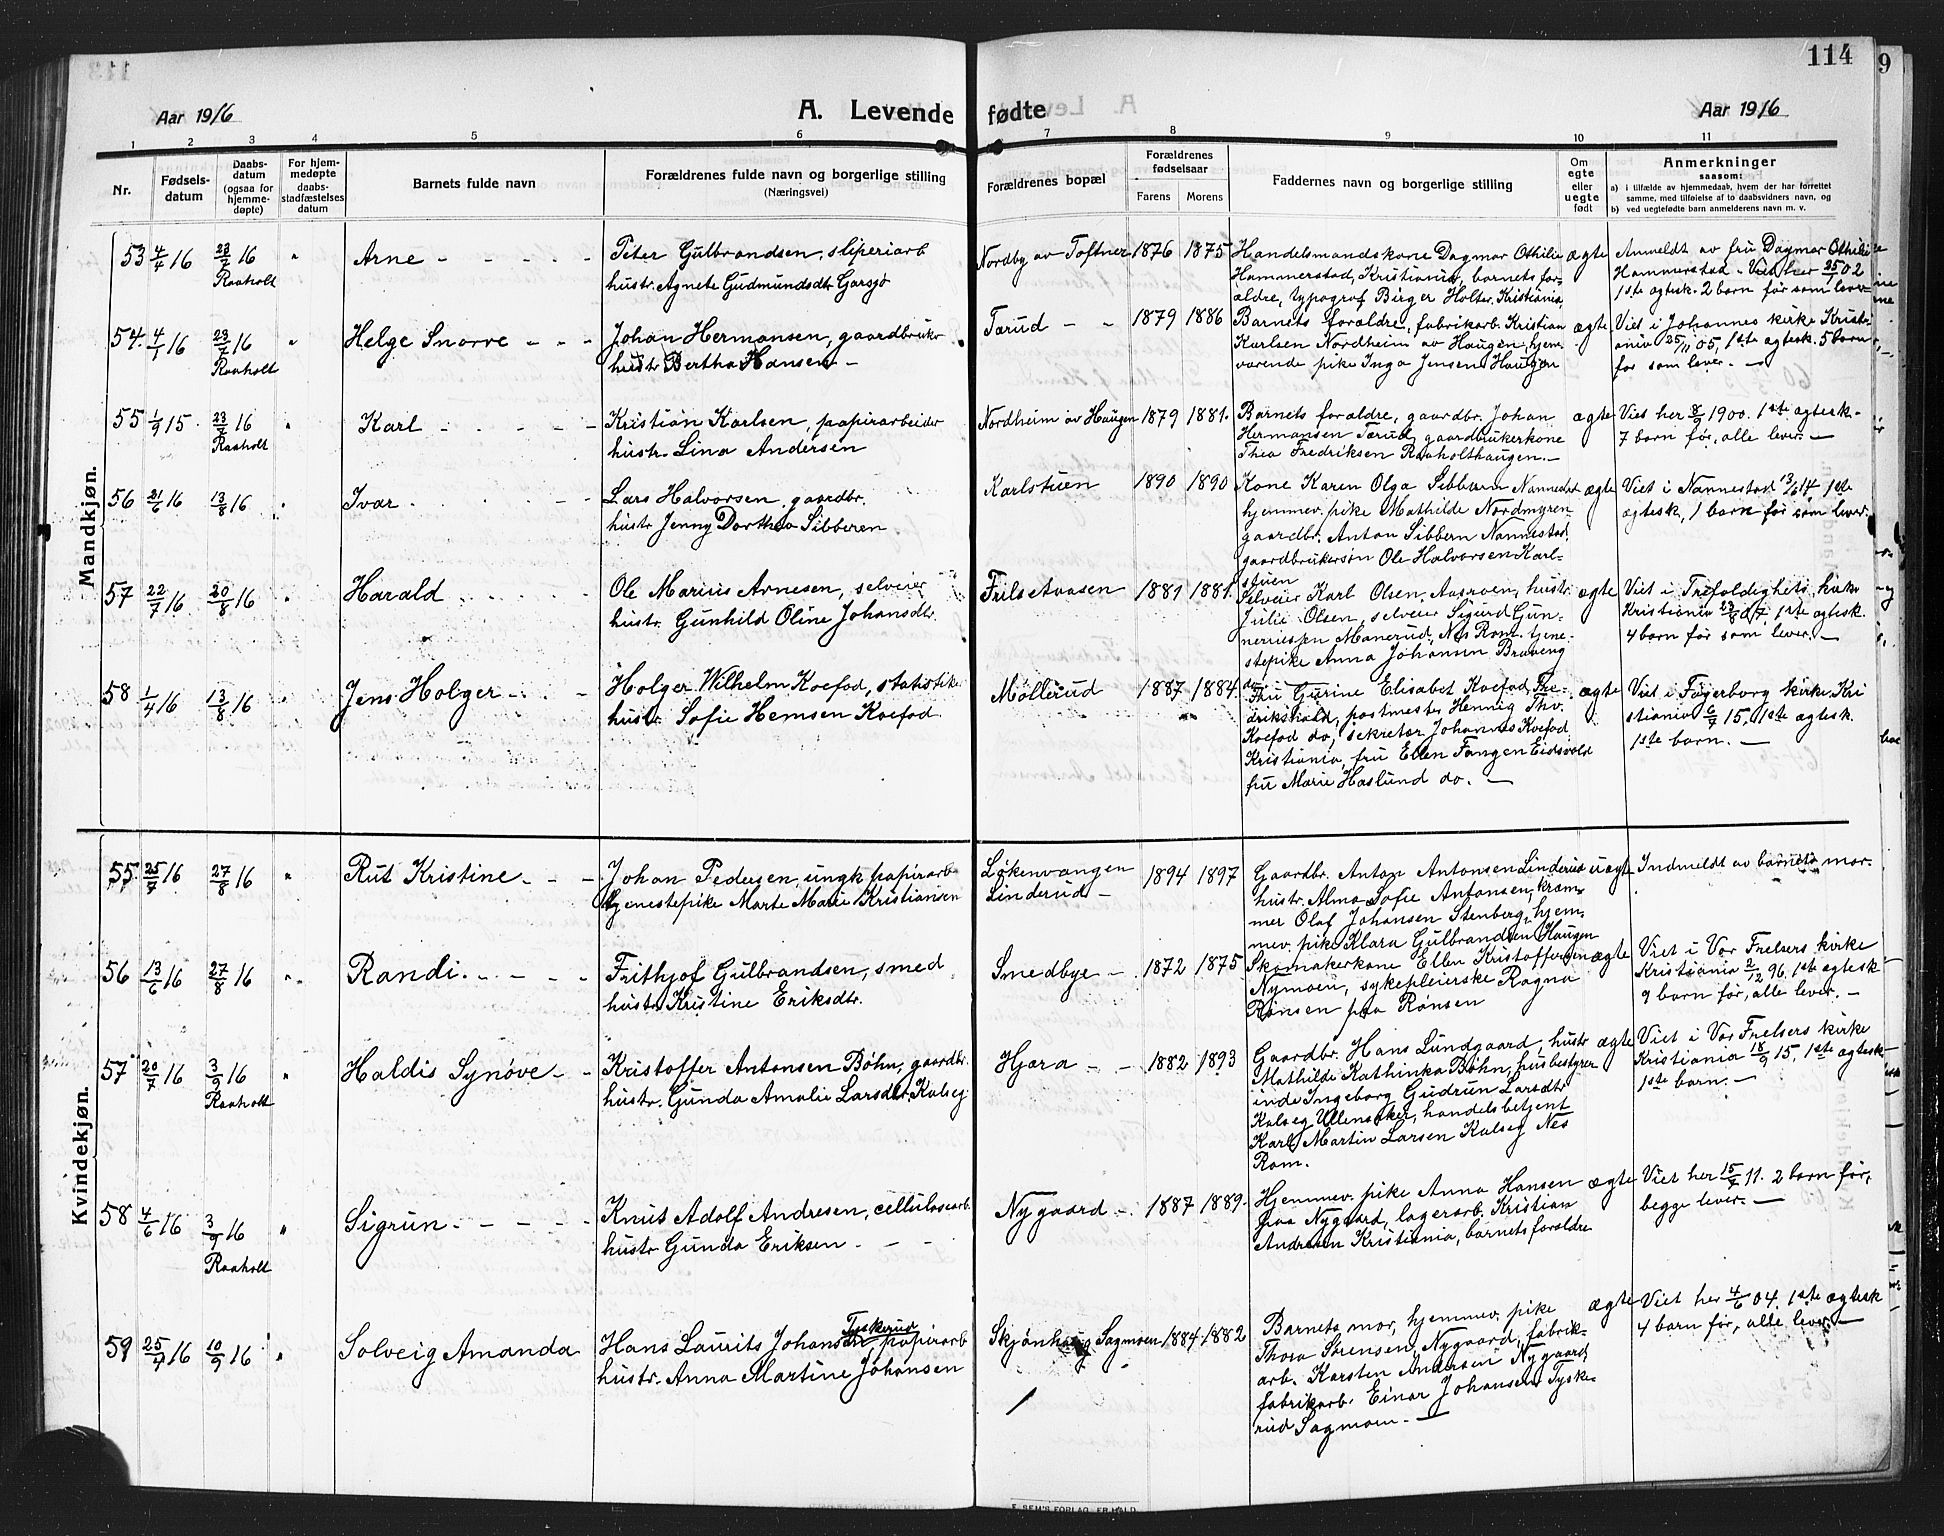 114
9
Aar 1916
A. Levende fødte
Aar 1916
1 2 3 4 5 6 7 8 9 10 11
Nr.
Fødsels-
datum
Daabs-
datum
(ogsaa for
hjemme-
døpte)
For hjem-
medøpte
daabs-
stadfæstelses
datum
Barnets fulde navn
Forældrenes fulde navn og borgerlige stilling
(Næringsvei)
Forældrenes bopæl
Forældrenes
fødselsaar
Farens Morens
Faddernes navn og borgerlige stilling
Om
egte
eller
uegte
født
Anmerkninger
saasom:
a) i tilfælde av hjemmedaab, hvem der har forrettet
samme, med tilføielse af to daabsvidners navn, og
b) ved uegtefødte barn anmelderens navn m. v.
Mandkjøn.
53 4/4 16 23/7 16 Raaholt " Arne - - - - -
Peter Gulbrandsen, sliperiarb
hustr. Agnete Gudmundsdtr Garsjø
Nordby av Toftner 1876 1875
Handelsmandskone Dagmar Othilie
Hammerstad, Kristiania, barnets for-
ældre, typograf Birger Holter, Kristiania
ægte
Anmeldt av fru Dagmar Othilie
Hammerstad - Viet her 25/ 02
1ste ægtesk. 2 barn før som lever
54. 4/1 16 23/7 16 Raaholt " Helge Snorre - - -
Johan Hermansen, gaardbruk.
hustr Bertha Hansen -
Tærud - - 1879 1886
Barnets forældre, fabrikarb. Kristian
Karlsen Nordheim av Haugen, hjem
værende pike Inga Jensen Haugen
ægte
Viet i Johannes kirke Kristi
ania 25/11 05, 1ste ægtesk. 5 barn
før som lever. -
55 1/9 15. 23/7 16 Raaholt " Karl - - - - - -
Kristian Karlsen, papirarbeider
hustr. Lina Andersen
Nordheim av Haugen 1879 1881.
Barnets forældre, gaardbr. Johan
Hermansen Tærud, gaardbrukerkone
Thea Fredriksen Raaholthaugen. -
ægte
Viet her 8/9 1900. 1ste ægtesk.
7 barn før, alle lever. -
56 21/6 16 13/8 16 " Ivar - - -
Lars Halvorsen, gaardbr.
hustr Jenny Dorthea Sibberen
Karlstuen 1890 1890
Kone Karen Olga Sibbern Nannestad
hjemmev. pike Mathilde Nordmyren
gaardbr. Anton Sibbern Nannestad.
gaardbrukersøn Ole Halvorsen Karl-
stuen
ægte
Viet i Nannestad 13/6 14. 1ste
ægtesk, 1 barn før som lever.
57 22/7 16 20/8 16 " Harald - - - -
Ole Marius Arnesen, selveier
hustr. Gunhild Oline Johansdtr.
Frilset aasen 1881 1881.
Selveier Karl Olsen, Aasroen, hustr
Julie Olsen, selveier Sigurd Gun-
neriussen Manerud, Nes Rom. tjene-
stepike Anna Johansen Bræeng
do.
ægte
Viet i Trefoldighets kirke
Kristiania 23/8 07. 1ste ægtesk.
4 barn før som lever. -
58 1/4 16 13/8 16 " Jens Holger - - -
Holger Wilhelm Koefod, statistike
hustr. Sofie Hemsen Koefod.
Møllerud 1887 1884.
Fru Gurine Elisabet Koefod, Fre-
drikshald, postmester Hennig Thv.
Koefod do, sekretær Johannes Koefod
Kristiania, fru Ellen Fangen Eidsvold
fru Marie Haslund do. -
ægte
Viet i Fagerborg kirke Kri
stiania 6/7 15, 1ste ægtesk.
1ste barn. -
Kvindekjøn.
55. 25/7 16 27/8 16 " Rut Kristine - - -
Johan Pedersen, ungk. papirarb.
tjenestepike Marte Marie Kristiansen
Løkenvangen
Linderud - 1894 1897
Gaardbr. Anton Antonsen Linderud
hustr. Alma Sofie Antonsen, kram-
mer Olaf Johansen Stenberg, hjem-
mev. pike Klara Gulbrandsen Haugen
uægte
Indmeldt av barnets mor.
56 13/6 16 27/8 16 " Randi. - - - -
Frithjof Gulbrandsen, smed
hustr. Kristine Eriksdtr.
Smedbye - 1872 1875
Skomakerkone Ellen Kristoffersen
Nymoen, sykepleierske Ragna
Rønsen paa Rønsen
ægte
Viet i Vor Frelsers kirke
Kristiania 2/12 96. 1ste ægtesk
9 barn før, alle lever. -
57 20/7 16 3/9 16 Raaholt " Haldis Synøve - -
Kristoffer Antonsen Bøhn, gaardbr.
hustr. Gunda Amalie Larsdtr. Kulseg
Hjera - - 1882 1893
Gaardbr. Hans Lundgaard, hustr
Mathilde Kathinka Bøhn, husbestyrer
inde Ingeborg Gudrun Larsdtr
Kulseg Ullensaker, handelsbetjent
Karl Martin Larsen Kulseg Nes
Rom.
ægte
Viet i Vor Frelsers kirke
Kristiania 18/9 15, 1ste ægtesk
1ste barn. -
58 4/6 16 3/9 16 Raaholt " Sigrun. - - - -
Knut Adolf Andresen, cellulosearb.
hustr Gunda Eriksen - - -
Nygaard - 1887 1889.
Hjemmev. pike Anna Hansen
paa Nygaard, lagerarb. Kristian
Andresen Kristiania, barnets forældre
ægte
Viet her 15/7 11. 2 barn før,
begge lever. -
59 25/4 16 10/9 16 " Solveig Amanda
Tyskerud
Hans Laurits Johansen, papirarb
hustr. Anna Martine Johansen
Skjønhaug Sagmoen 1884 1882
Barnets mor, hjemmev. pike
Thora Sørensen, Nygaard, fabrik-
arb. Karsten Andersen Nygaard,
fabrikarb. Einar Johansen Tyske-
rud Sagmoen. -
ægte
Viet her 4/6 04. 1ste ægtesk
4 barn før, alle lever. -
E. SEM'S FORLAG, FR.HALD